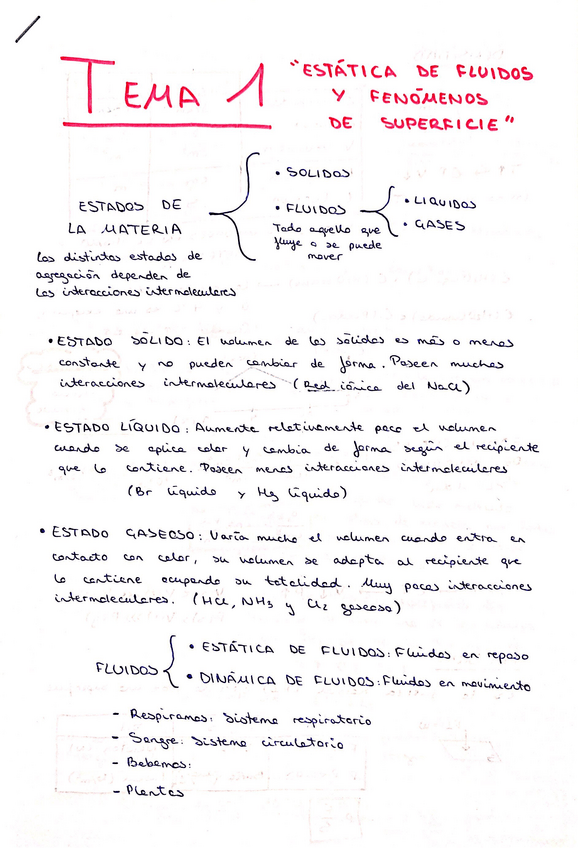 TEMA 1
"ESTÁTICA DE FLUIDOS
Y FENÓMENOS
DE SUPERFICIE"
ESTADOS DE
LA MATERIA
Los distintos estados de
agregación dependen de
las interacciones intermoleculares
• SOLIDOS
• FLUIDOS
Todo aquello que
fluye o se puede
mover
• LIQUIDOS
• GASES
• ESTADO SÓLIDO: El volumen de los sólidos es más o menos
constante y no pueden cambiar de forma. Poseen muchas
interacciones intermoleculares (Red iónica del NaCl)
• ESTADO LÍQUIDO: Aumenta relativamente poco el volumen
cuando se aplica calor y cambia de forma según el recipiente
que lo contiene. Poseen menos interacciones intermoleculares
(Br líquido y Hg líquido)
• ESTADO GASEOSO: Varía mucho el volumen cuando entra en
contacto con calor, su volumen se adapta al recipiente que
lo contiene ocupando su totalidad. Muy pocas interacciones
intermoleculares. (HCl, NH3 y Cl2 gaseoso)
FLUIDOS
• ESTÁTICA DE FLUIDOS: Fluidos en reposo
• DINÁMICA DE FLUIDOS: Fluidos en movimiento
- Respiramos: Sistema respiratorio
- Sangre: Sistema circulatorio
- Bebemos:
- Plantas